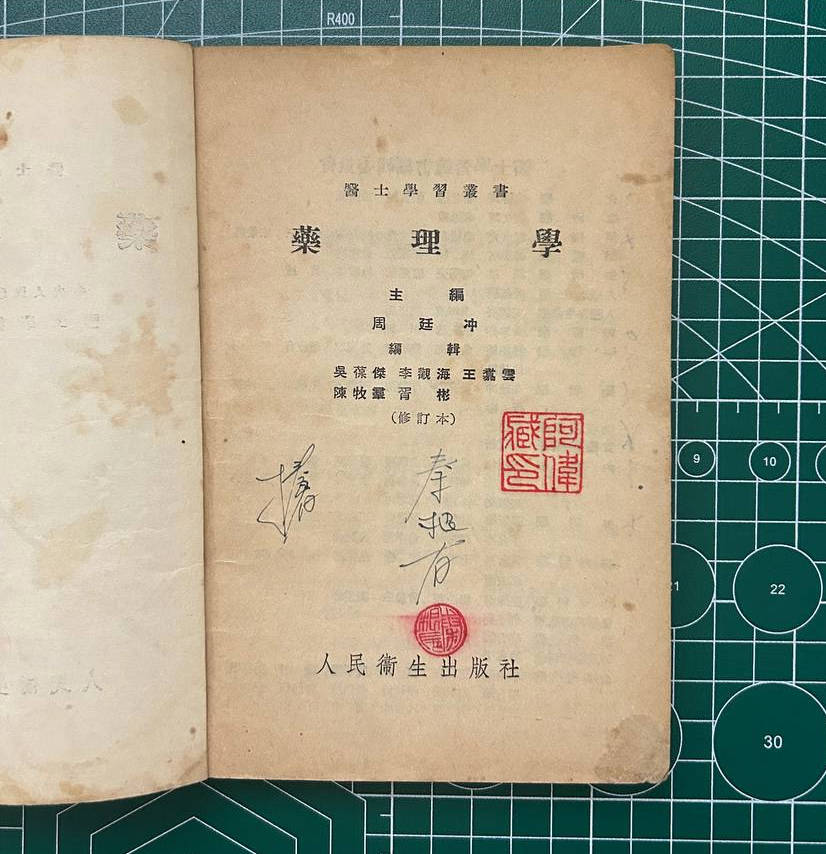 R400
醫士學習叢書
藥理學
主編
周廷冲
編輯
吳葆傑 李觀海 王翥雲
陳牧羣 胥彬
(修訂本)
阿偉
藏印
秦振有
人民衞生出版社
9
10
22
30
藥